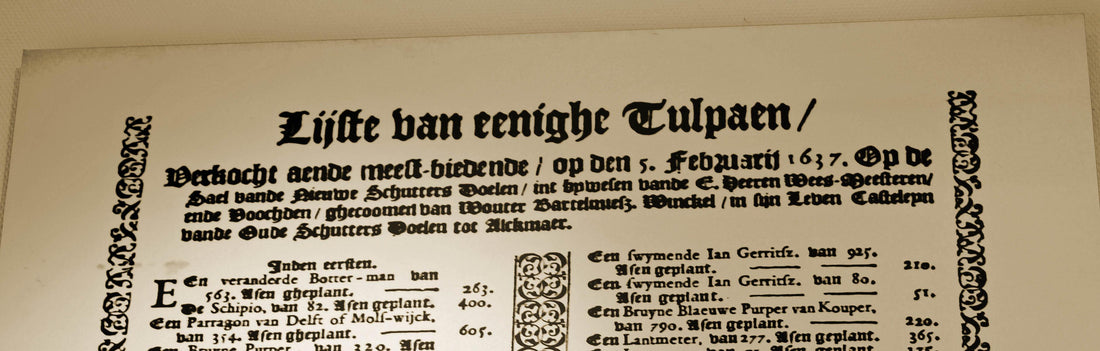 Lijste van eenighe Tulpaen/
Verkocht aende meest-biedende / op den 5. Februarij 1637. Op de
Sael vande Nieuwe Schutters Doelen / int bywesen vande E. Heeren Wees-Meesteren/
ende Voochden / ghecoomen van Wouter Bartelmiesz. Winckel / in sijn Leven Castelepn
vande Oude Schutters Doelen tot Alckmaer.
Inden eersten.
EEn veranderde Botter-man van
563. Asen gheplant. 263.
De Schipio, van 82. Asen geplant. 400.
Een Parragon van Delft of Molswijck,
van 354. Asen gheplant. 605.
Een Bruyne Purper van 320. Asen
Een swymende Ian Gerritsz. van 925.
Asen geplant. 210.
Een swymende Ian Gerritsz. van 80.
Asen geplant. 51.
Een Bruyne Blaeuwe Purper van Kouper,
van 790. Asen geplant. 220.
Een Lantmeter, van 277. Asen geplant. 365.